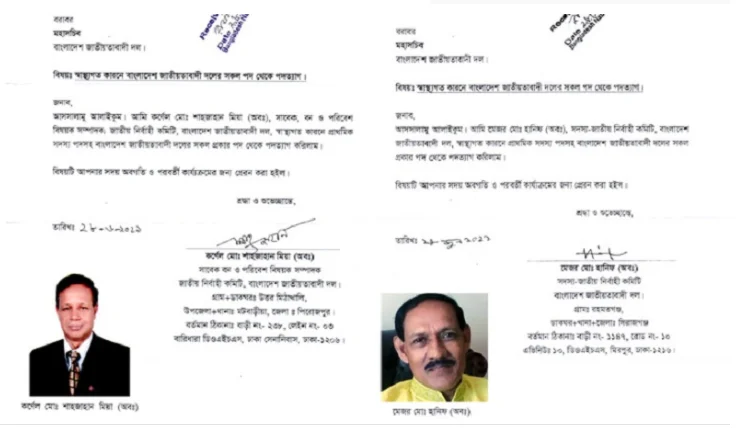 বরাবর
মহাসচিব
বাংলাদেশ জাতীয়তাবাদী দল।
বিষয়ঃ স্বাস্থ্যগত কারনে বাংলাদেশ জাতীয়তাবাদী দলের সকল পদ থেকে পদত্যাগ।
জনাব,
আসসালামু আলাইকুম। আমি কর্ণেল মোঃ শাহজাহান মিয়া (অবঃ), সাবেক, বন ও পরিবেশ
বিষয়ক সম্পাদক, জাতীয় নির্বাহী কমিটি, বাংলাদেশ জাতীয়তাবাদী দল, স্বাস্থ্যগত কারনে প্রাথমিক
সদস্য পদসহ বাংলাদেশ জাতীয়তাবাদী দলের সকল প্রকার পদ থেকে পদত্যাগ করিলাম।
বিষয়টি আপনার সদয় অবগতি ও পরবর্তী কার্যক্রমের জন্য প্রেরন করা হইল।
শ্রদ্ধা ও শুভেচ্ছান্তে,
তারিখঃ
কর্ণেল মোঃ শাহজাহান মিয়া (অবঃ)
সাবেক বন ও পরিবেশ বিষয়ক সম্পাদক
জাতীয় নির্বাহী কমিটি, বাংলাদেশ জাতীয়তাবাদী দল।
গ্রাম+ডাকঘরঃ উত্তর মিঠাখালি,
উপজেলা+থানাঃ মঠবাড়ীয়া, জেলা ঃ পিরোজপুর।
বর্তমান ঠিকানাঃ বাড়ী নং- ২৩৮, লেইন নং- ০৩
বারিধারা ডিওএইচএস, ঢাকা সেনানিবাস, ঢাকা-১২০৬।
কর্ণেল মোঃ শাহজাহান মিয়া (অবঃ)
বরাবর
মহাসচিব
বাংলাদেশ জাতীয়তাবাদী দল।
বিষয়ঃ স্বাস্থ্যগত কারনে বাংলাদেশ জাতীয়তাবাদী দলের সকল পদ থেকে পদত্যাগ।
জনাব,
আসসালামু আলাইকুম। আমি মেজর মোঃ হানিফ (অবঃ), সদস্য-জাতীয় নির্বাহী কমিটি, বাংলাদেশ
জাতীয়তাবাদী দল, স্বাস্থ্যগত কারনে প্রাথমিক সদস্য পদসহ বাংলাদেশ জাতীয়তাবাদী দলের সকল
প্রকার পদ থেকে পদত্যাগ করিলাম।
বিষয়টি আপনার সদয় অবগতি ও পরবর্তী কার্যক্রমের জন্য প্রেরন করা হইল।
শ্রদ্ধা ও শুভেচ্ছান্তে,
তারিখঃ
মেজর মোঃ হানিফ (অবঃ)
সদস্য-জাতীয় নির্বাহী কমিটি
বাংলাদেশ জাতীয়তাবাদী দল।
গ্রামঃ রহমতগঞ্জ,
ডাকঘর+থানা+জেলাঃ সিরাজগঞ্জ
বর্তমান ঠিকানাঃ বাড়ী নং- ১১৪৭, রোড নং- ১০
এভিনিউঃ ১০, ডিওএইচএস, মিরপুর, ঢাকা-১২১৬।
মেজর মোঃ হানিফ (অবঃ)